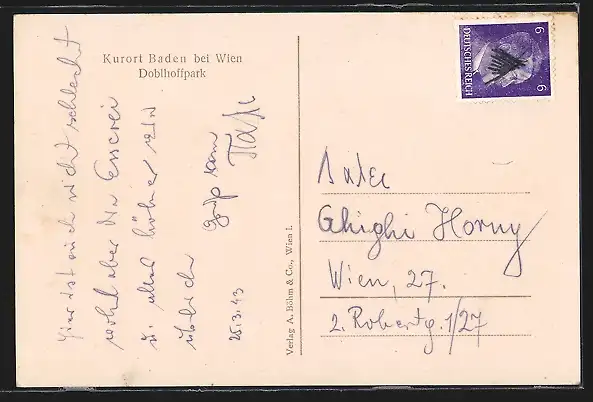 Kurort Baden bei Wien
Doblhoffpark
Hier ist auch nicht schlecht
wohl aber die Esserei
u. alles höher als
üblich
25.3.43
Verlag A. Böhm & Co., Wien I.
DEUTSCHES REICH
6
6
Ghighi Horny
Wien, 27.
2. Robertg. 1/27